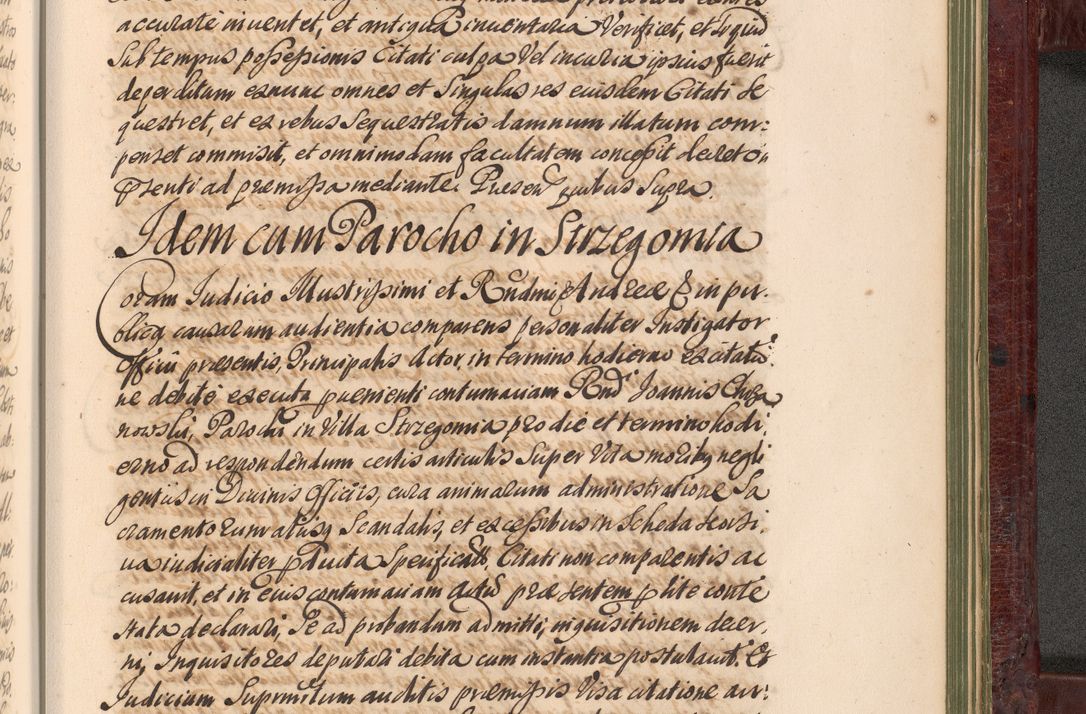 accurate inventet, et antiqua inventaria Verificet, et si quid
Sub tempus possessionis Citati culpa Vel incuria ipsius fuerit
deperditum ex nunc omnes et Singulas res eiusdem Citati Se
questret, et ex rebus Sequestratis damnum illatum com:
penset commisit, et omnimodam facultatem concessit decreto
pñsenti ad præmissa mediante. Præsen: quibus Supra.
Idem cum Parocho in Strzegomia
Coram Iudicio Illustrissimi et Rñdmi Andreæ in pu:
blica causarum audientia comparens personaliter Instigator
Officii præsentis, Principalis Actor, in termino hodierno ex citatio:
ne debite executa provenienti contumaciam Rnd: Joannis Chrza
nowski, Parochi in Villa Strzegomia pro die et termino hodi,
erno ad respondendum certis articulis Super Vita moribq negli
gentiis in Divinis Officiis, cura animarum administratione Sa
cramentorum abusq Scandalis, et excessibus in Scheda seorsi
va iudicialiter pducta Specificatis, Citati non comparentis ac
cusavit, et in eius contumaciam Actũ præsentem p lite conte
stata declarari, Se ad probandum admitti, inquisitionem decer,
ni, Inquisitores deputari debita cum instantia postulavit. Et
Iudicium Suprmtum auditis præmissis Visa citatione